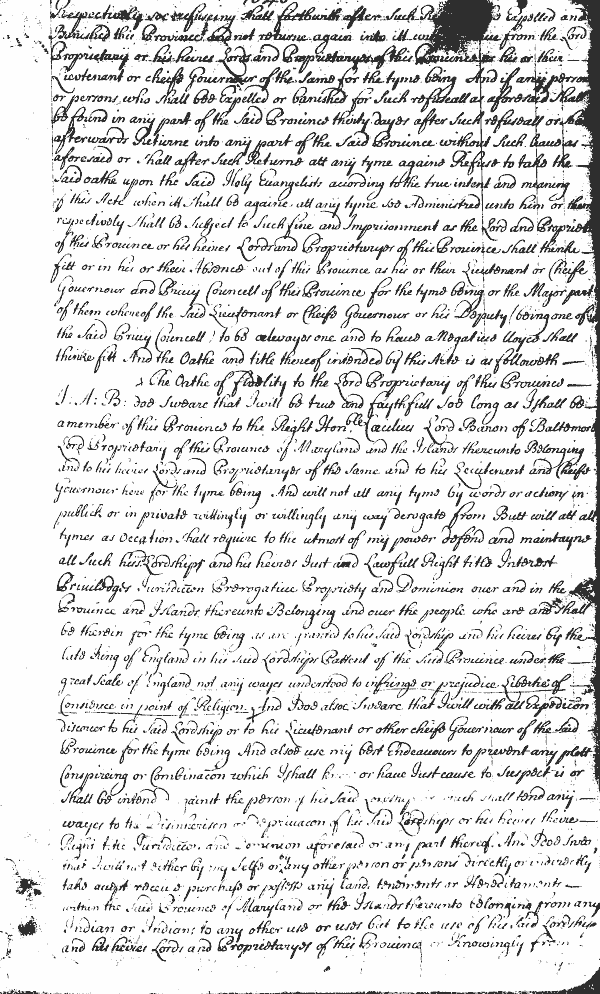 Respectively soe refuseing shall forthwith after Such Expelled and
Banished this Province and not returne again into itt from the Lord
Proprietary or his heires Lords and Proprietaryes of this Province or his or their
Lieutenant or cheife Governour of the Same for the tyme being And if any person
or persons who shall bee Expelled or banished for Such refuseall as aforesaid Shall
be found in any part of the Said Province thirty dayes after Such refuseall or shall
afterwards Returne into any part of the Said Province without Such leave as
aforesaid or Shall after Such Returne att any tyme againe Refuse to take the
Said oathe upon the Said Holy Evangelists according to the true intent and meaning
of this Acte when itt Shall be againe att any tyme soe Administred unto him or them
respectively Shall be Subject to Such fine and Imprisonment as the Lord and Propriet
of this Province or his heires Lords and Proprietaryes of this Province Shall thinke
fitt or in his or their Absence out of this Province as his or their Lieutenant or Cheife
Governour and Privy Councell of this Province for the tyme being or the Major part
of them whereof the Said Lieutenant or Cheife Governour or his Deputy (being one of
the Said Privy Councell) to be alwayes one and to have a Negative Voyce Shall
thinke fitt And the Oathe and title thereof intended by this Acte is as followeth
The Oathe of Fidelity to the Lord Proprietary of this Province
I. A: B: doe Sweare that I will be true and faythfull Soe Long as I shall be
a member of this Province to the Right Honble Cæcilius Lord Baron of Baltemore
Lord Proprietary of this Province of Maryland and the Islands thereunto Belonging
and to his heires Lords and Proprietaryes of the Same and to his Leeutenent and Cheife
Governour here for the tyme being And will not att any tyme by words or actions in
publick or in private willingly or willingly any way derogate from Butt will att all
tymes as occation Shall require to the utmost of my power defend and maintayne
all Such his Lordships and his heires Just and Lawfull Right title Interest
Priviledges Jurisdiccon Prerogative Propriety and Dominion over and in the
Province and Islands thereunto Belonging and over the people who are and Shall
be therein for the tyme being as are granted to his Said Lordship and his heires by the
late King of England in his Said Lordships Pattent of the Said Province under the
great Seale of England not any wayes understood to infringe or prejudice Libertie of
Consience in point of Religion And I doe alsoe Sweare that I will with all Expedicon
discover to his Said Lordship or to his Lieutenant or other cheife Governour of the Said
Province for the tyme being And alsoe use my best Endeavours to prevent any plott
Conspireing or Combinacon which I shall or have Just cause to Suspect is or
Shall be intend against the person of his Said Lordship or which shall tend any
wayes to the Disinherison or deprivacon of his Said Lordships or his heires theire
Right title Jurisdiccon and Dominion aforesaid or any part thereof And I doe Sweare
that I will not either by my Selfe or any other person or persons directly or indirectly
take accept receive purchase or possess any land tenements or Hereditaments
within the Said Province of Maryland or the Islands thereunto belonging from any
Indian or Indians to any other use or uses but to the use of his Said Lordship
and his heires Lords and Proprietaryes of this Province or Knowingly from